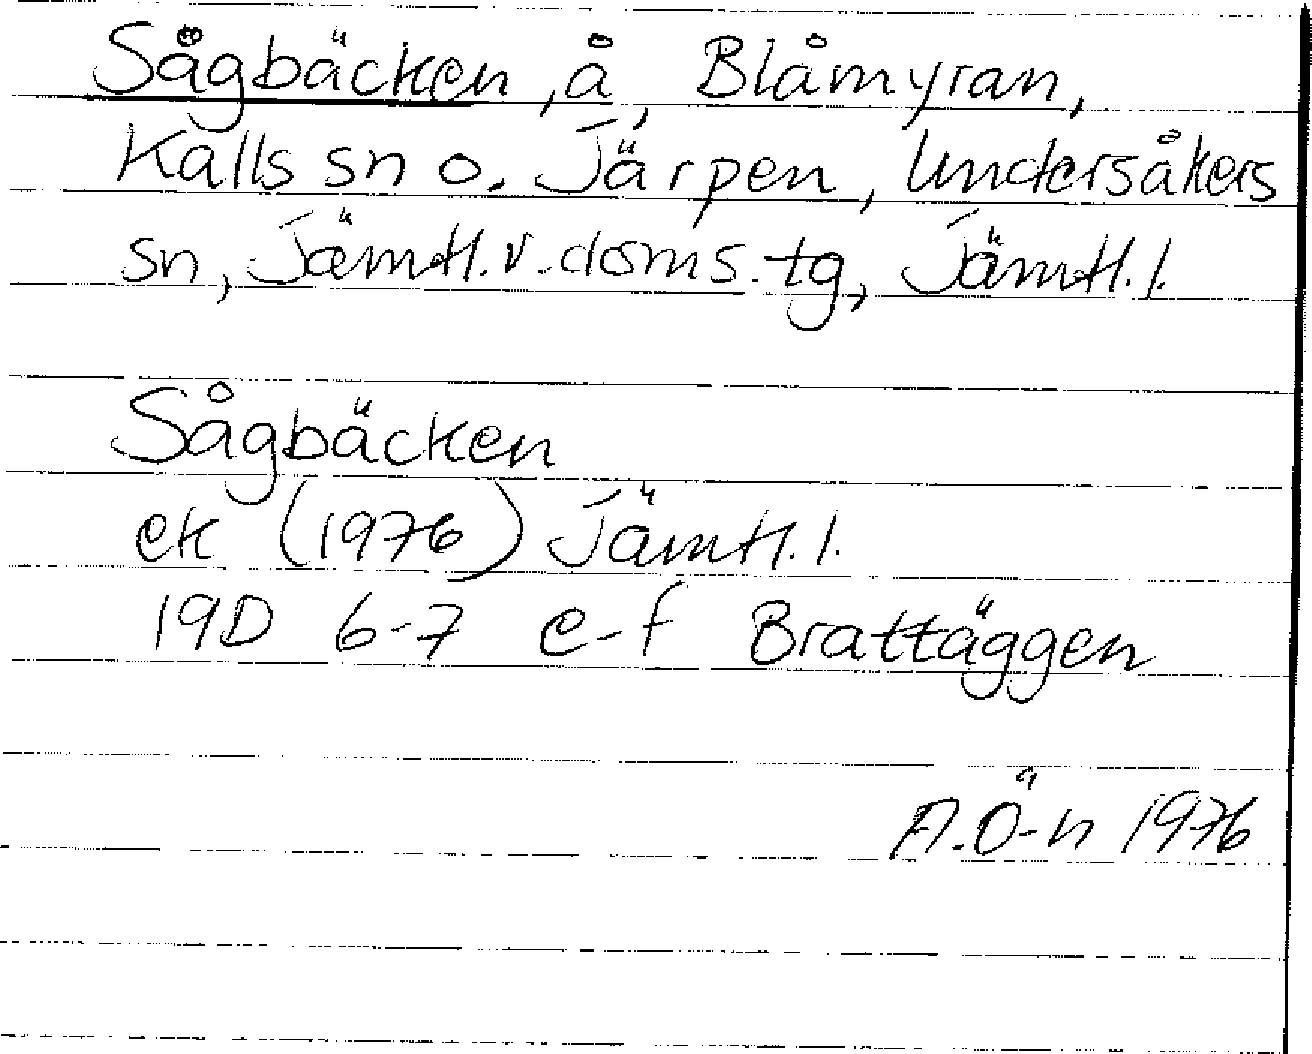 Sågbäcken, å, Blåmyran,
Kalls sn o. Järpen, Undersåkers
sn, Jämtl. v. doms. tg, Jämtl. l.
Sågbäcken
ek (1976) Jämtl. l.
19D 6-7 e-f Brattäggen
A.Ö-n 1976